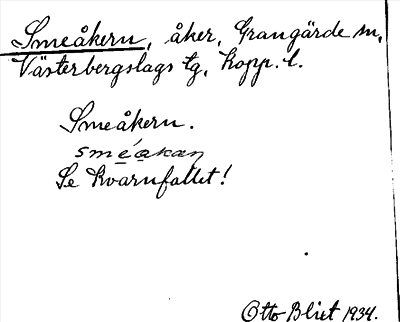 Smeåkern, åker, Grangärde sn,
Västerbergslags tg, Kopp. l.
Smeåkern.
sméakaɳ
Se Kvarnfallet!
Otto Blixt 1934.